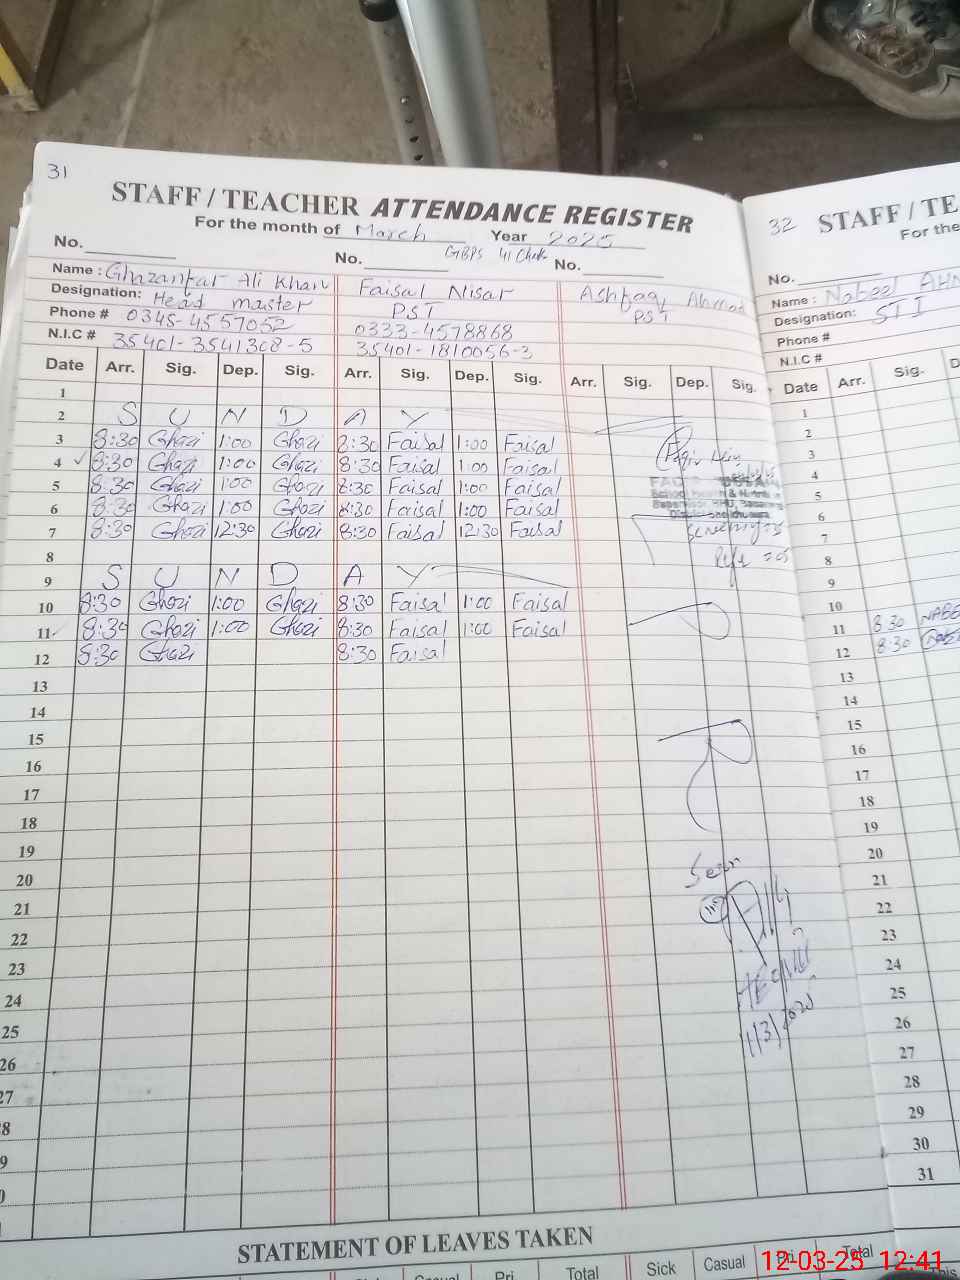 31
STAFF / TEACHER ATTENDANCE REGISTER
For the month of March Year 2025
No. No. GBPS 41 Chak No.
Name : Ghzanfar Ali Khan Faisal Nisar Ashfaq Ahmad
Designation: Head master PST PST
Phone # 0345-4557052 0333-4578868
N.I.C # 35401-3541308-5 35401-1810056-3
Date Arr. Sig. Dep. Sig. Arr. Sig. Dep. Sig. Arr. Sig. Dep. Sig.
1
2 S U N D A Y
3 8:30 Ghazi 1:00 Ghazi 8:30 Faisal 1:00 Faisal
4 8:30 Ghazi 1:00 Ghazi 8:30 Faisal 1:00 Faisal
5 8:30 Ghazi 1:00 Ghazi 8:30 Faisal 1:00 Faisal
6 8:30 Ghazi 1:00 Ghazi 8:30 Faisal 1:00 Faisal
7 8:30 Ghazi 12:30 Ghazi 8:30 Faisal 12:30 Faisal
8
9 S U N D A Y
10 8:30 Ghazi 1:00 Ghazi 8:30 Faisal 1:00 Faisal
11 8:30 Ghazi 1:00 Ghazi 8:30 Faisal 1:00 Faisal
12 8:30 Ghazi 8:30 Faisal
13
14
15
16
17
18
19
20
21
22
23
24
25
26
27
8
9
0
School Health &
STATEMENT OF LEAVES TAKEN
Casual Pri Total Sick Casual Pri Total
32 STAFF / TE
For the
No.
Name : Nabeel AHM
Designation: STI
Phone #
N.I.C #
Date Arr. Sig. D
1
2
3
4
5
6
7
8
9
10
11 8:30 NABE
12 8:30
13
14
15
16
17
18
19
20
21
22
23
24
25
26
27
28
29
30
31
12-03-25 12:41